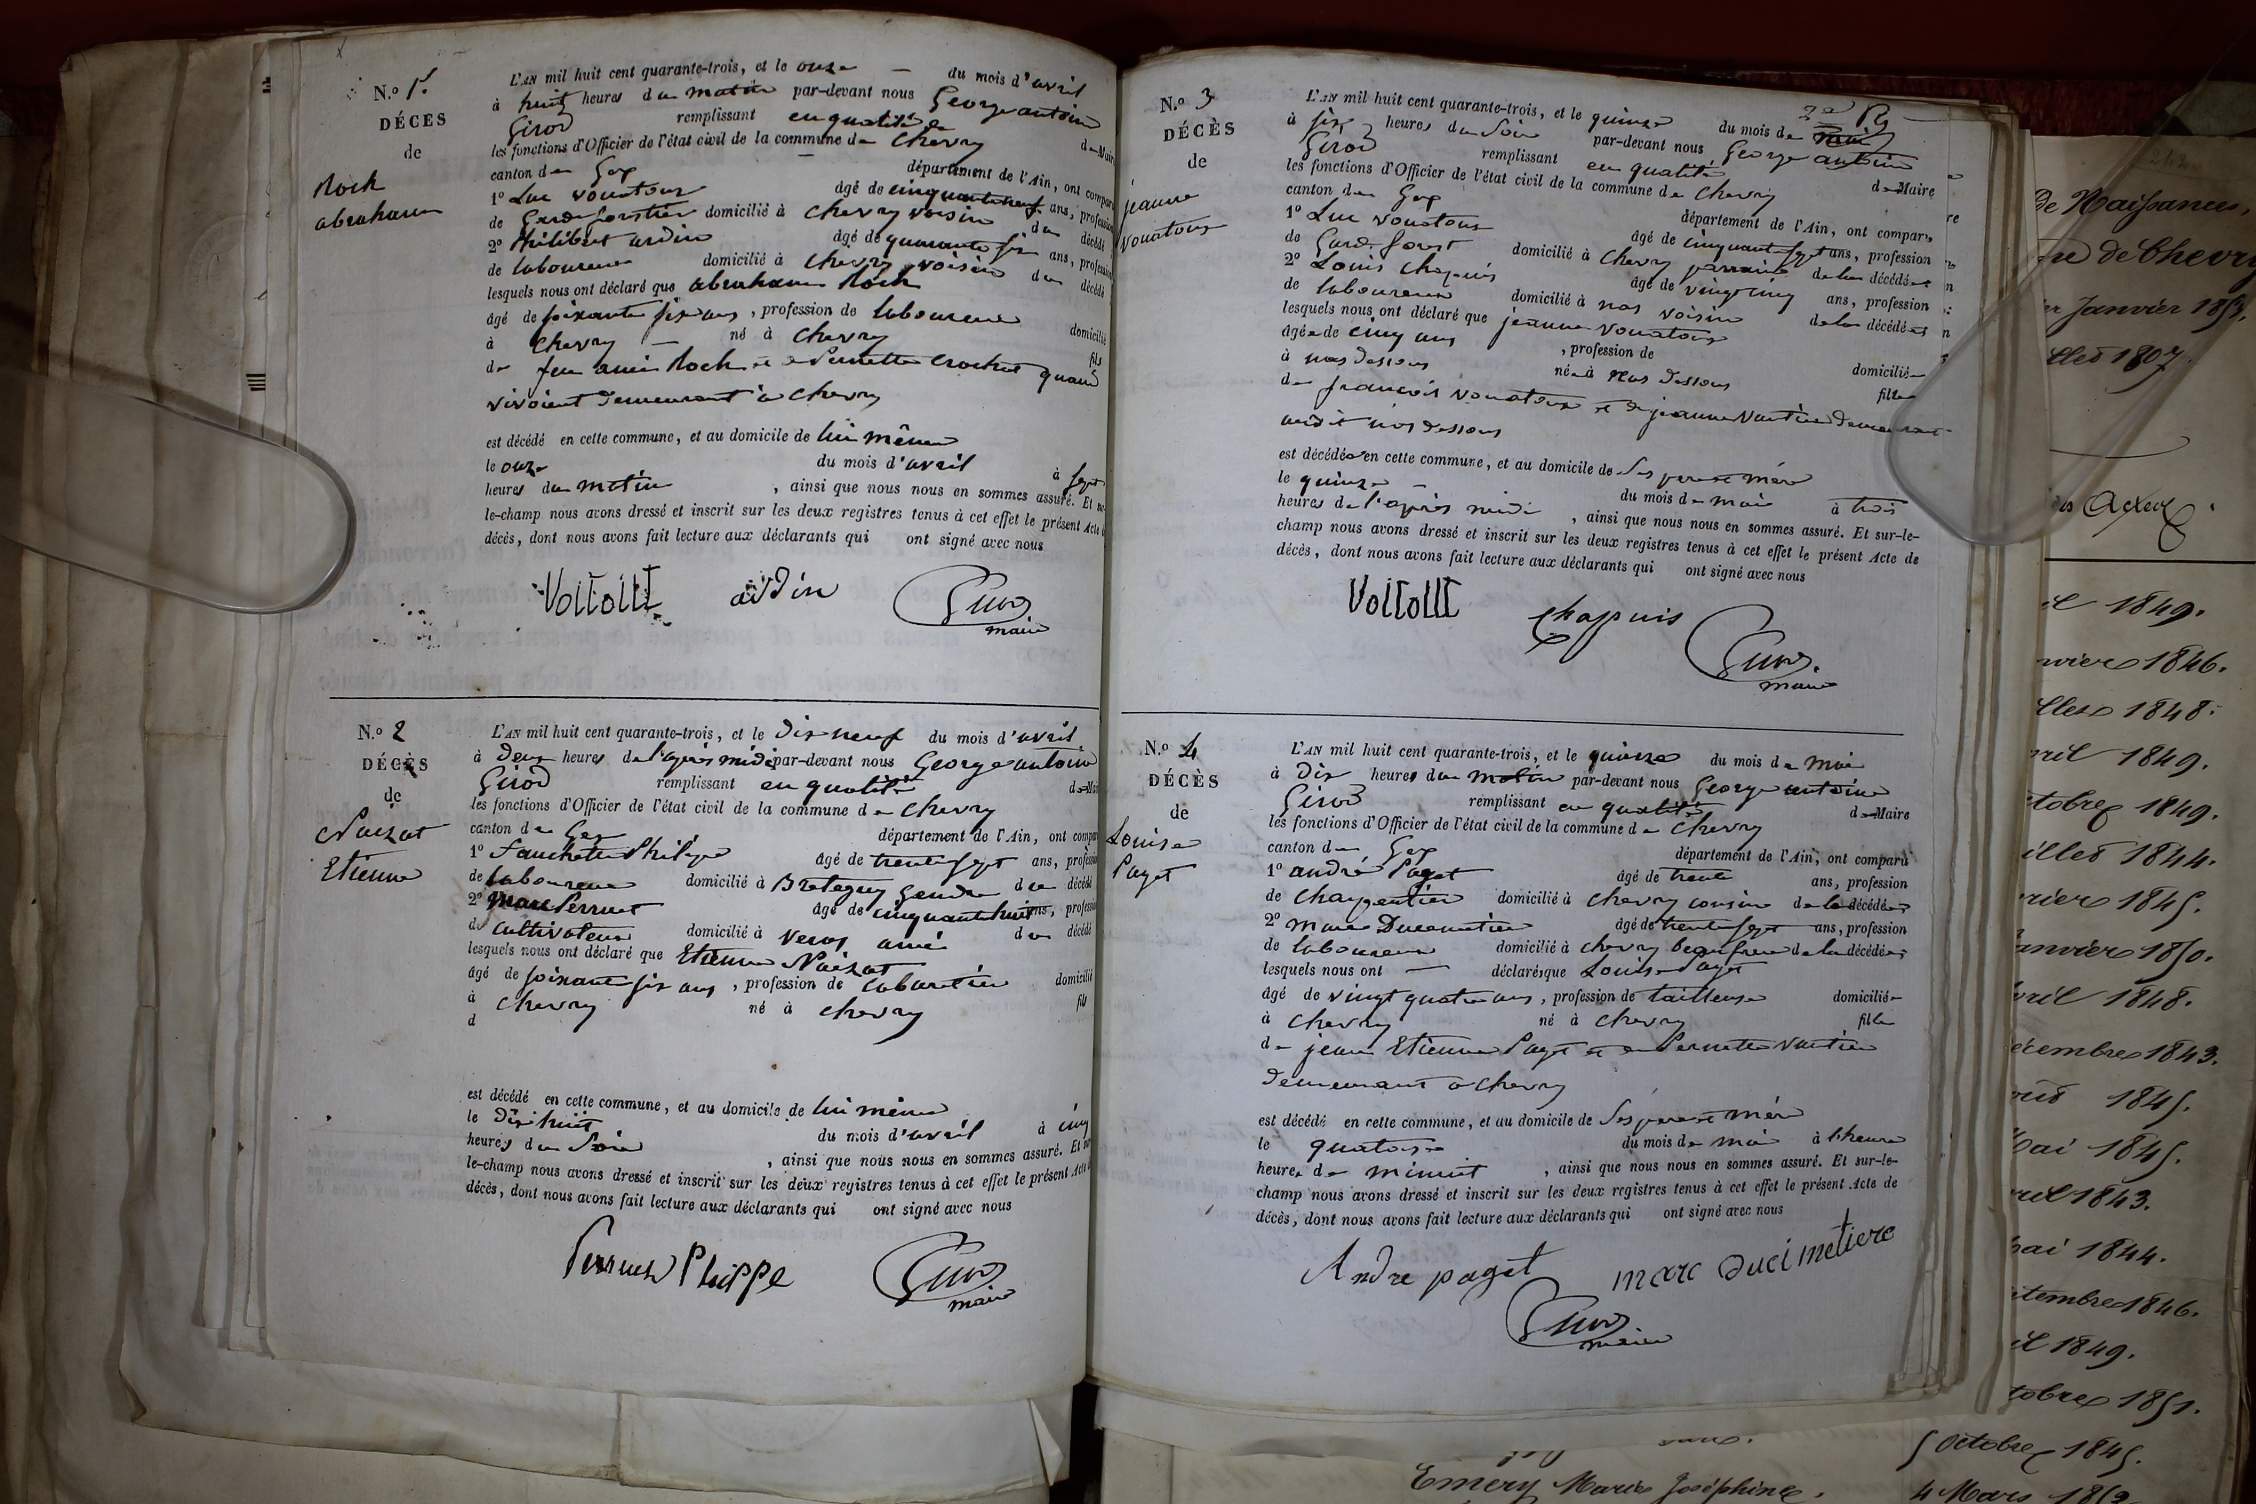 N.º 1.
DÉCES
de
Roch
abraham
L'AN mil huit cent quarante-trois, et le onze du mois d'avril
à huit heures du matin par-devant nous George antoine
Girod remplissant en qualité de Maire
les fonctions d'Officier de l'état civil de la commune de Chevry
canton de Gex département de l'Ain, ont compar
1º Luc vouatoux âgé de cinquante neuf ans, profession
de Garde forestier domicilié à Chevry voisin du décédé
2º Philibert ardin âgé de quarante six ans, profession
de laboureur domicilié à Chevry voisin du décédé
lesquels nous ont déclaré que abraham Roch
âgé de soixante six ans, profession de laboureur domicilié
à Chevry né à Chevry fils
de feu ami Roch et de Pernette Crochet quand
vivoient demeurant à Chevry
est décédé en cette commune, et au domicile de lui même
le onze du mois d'avril à sept
heures du matin, ainsi que nous nous en sommes assuré. Et
le-champ nous avons dressé et inscrit sur les deux registres tenus à cet effet le présent Acte
décès, dont nous avons fait lecture aux déclarants qui ont signé avec nous
ardin Girod
maire
N.º 2
DÉCÈS
de
Naizot
Etienne
L'AN mil huit cent quarante-trois, et le dix neuf du mois d'avril
à deux heures de l'après midi par-devant nous George antoine
Girod remplissant en qualité de
les fonctions d'Officier de l'état civil de la commune de Chevry
canton de Gex département de l'Ain, ont compar
1º Fauchette Philipe âgé de trente sept ans, profession
de laboureur domicilié à Bretegny gendre du décédé
2º Marc Perruet âgé de cinquante huit ans, profession
de cultivateur domicilié à Veras ami du décédé
lesquels nous ont déclaré que Etienne Naizot
âgé de soixante six ans, profession de cabaretier domicilié
à Chevry né à Chevry fils
d
est décédé en cette commune, et au domicile de lui même
le dix huit du mois d'avril à cinq
heures du Soir, ainsi que nous nous en sommes assuré. Et
le-champ nous avons dressé et inscrit sur les deux registres tenus à cet effet le présent Acte
décès, dont nous avons fait lecture aux déclarants qui ont signé avec nous
Girod
maire
N.º 3
DÉCÈS
de
jeanne
Vouatoux
L'AN mil huit cent quarante-trois, et le quinze du mois de mai
à six heures du Soir par-devant nous George antoine
Girod remplissant en qualité de Maire
les fonctions d'Officier de l'état civil de la commune de Chevry
canton de Gex département de l'Ain, ont comparu
1º Luc vouatoux âgé de cinquante sept ans, profession
de Garde forest domicilié à Chevry parrain de la décédée
2º Louis Chapuis âgé de vingt cinq ans, profession
de laboureur domicilié à nas voisin de la décédée
lesquels nous ont déclaré que jeanne vouatoux
âgée de cinq ans, profession de domiciliée
à nas dessous née à nas dessous fille
de françois vouatoux et de jeanne Vautier demeurant
audit nas dessous
est décédée en cette commune, et au domicile de Ses pere et mére
le quinze du mois de mai à trois
heures de l'après midi, ainsi que nous nous en sommes assuré. Et sur-le-
champ nous avons dressé et inscrit sur les deux registres tenus à cet effet le présent Acte de
décès, dont nous avons fait lecture aux déclarants qui ont signé avec nous
Chapuis Girod
maire
N.º 4
DÉCÈS
de
Louise
Paget
L'AN mil huit cent quarante-trois, et le quinze du mois de mai
à dix heures du matin par-devant nous George antoine
Girod remplissant en qualité de Maire
les fonctions d'Officier de l'état civil de la commune de Chevry
canton de Gex département de l'Ain, ont comparu
1º andré Paget âgé de trente ans, profession
de charpentier domicilié à Chevry cousin de la décédée
2º marc Ducimetière âgé de trente sept ans, profession
de laboureur domicilié à Chevry beaufrere de la décédée
lesquels nous ont déclarés que Louise Paget
âgé de vingt quatre ans, profession de tailleuse domiciliée
à Chevry né à Chevry fille
de jean Etienne Paget et de Pernette Vautier
demeurant à Chevry
est décédé en cette commune, et au domicile de Ses pere et mére
le quatorze du mois de mai à l'heure
heure de minuit, ainsi que nous nous en sommes assuré. Et sur-le-
champ nous avons dressé et inscrit sur les deux registres tenus à cet effet le présent Acte de
décès, dont nous avons fait lecture aux déclarants qui ont signé avec nous
Andre paget marc ducimetiere
Girod
maire
de Naissances,
de Chevry
Janvier
1807.
1849.
1846.
1848.
1849.
1849.
1844.
1845.
1850.
1848.
1843.
1845.
1845.
1843.
1844.
1846.
1849.
1851.
5 Octobre 1845.
Emery Marie Joséphine. 4 Mars